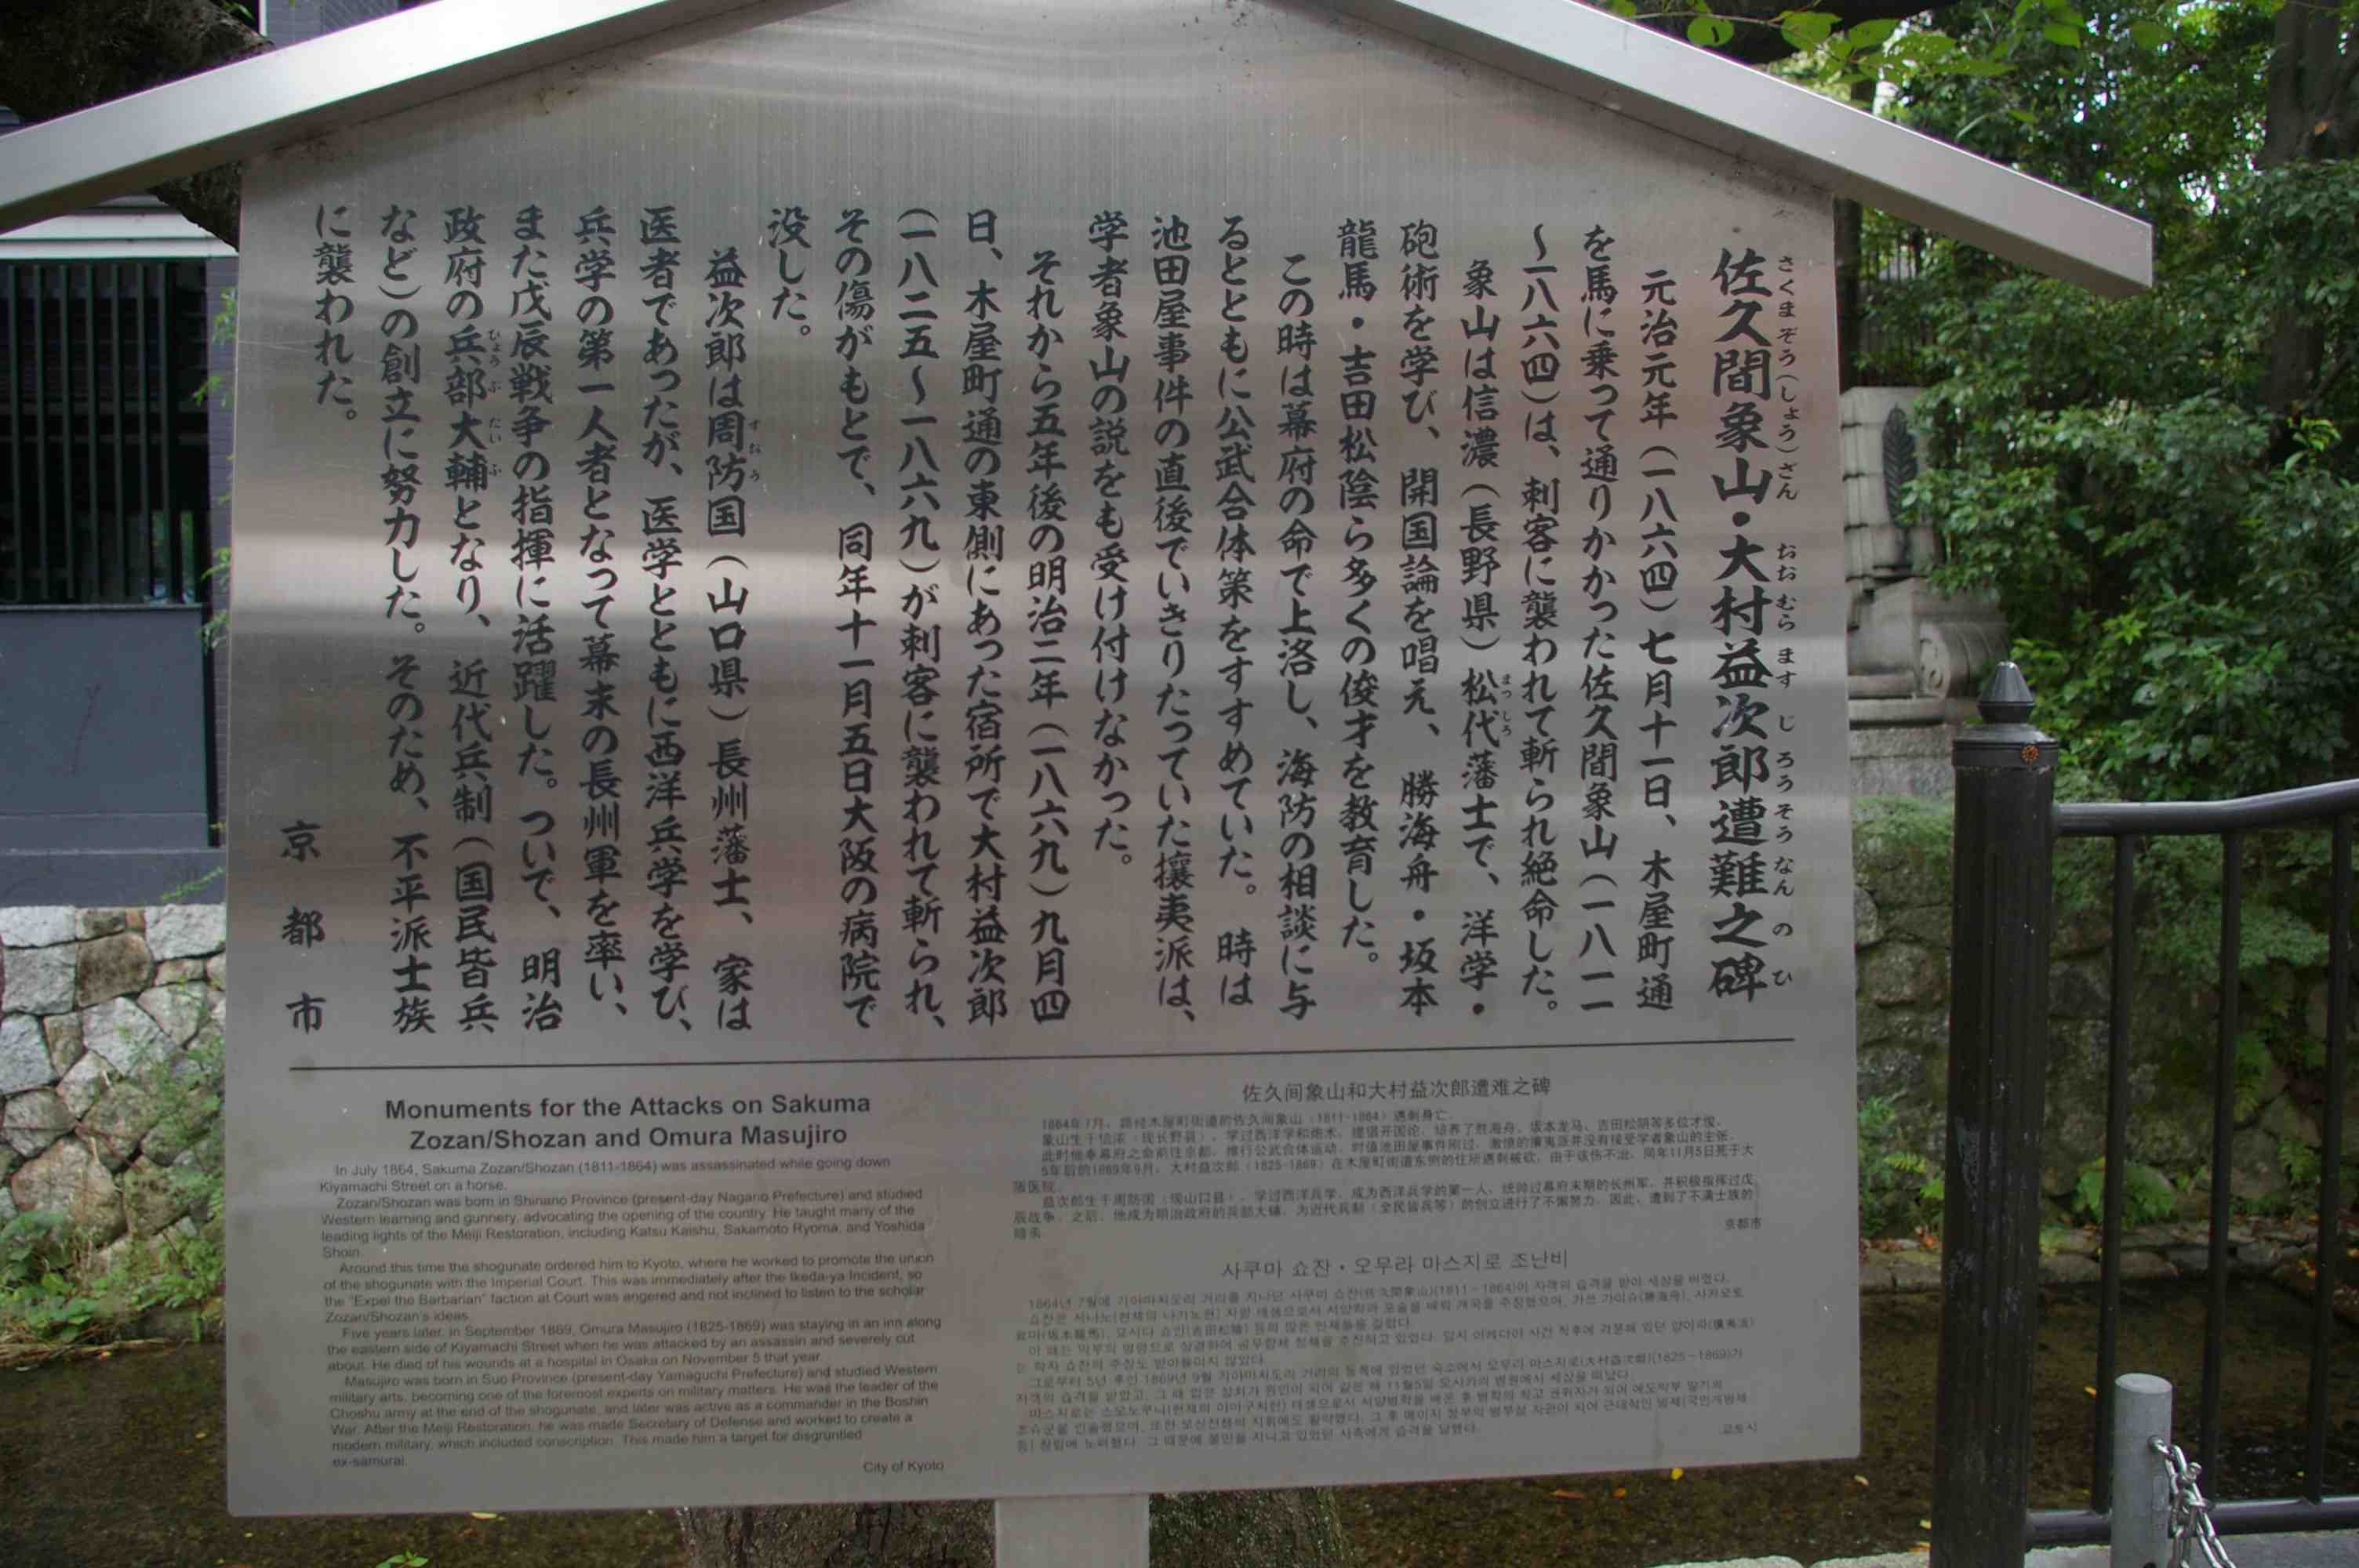 佐久間象山・大村益次郎遭難之碑
さくまぞう(しょう)ざん おおむらますじろうそうなんのひ
元治元年（一八六四）七月十一日、木屋町通
を馬に乗って通りかかった佐久間象山（一八一一
〜一八六四）は、刺客に襲われて斬られ絶命した。
象山は信濃（長野県）松代藩士で、洋学・
まつしろ
砲術を学び、開国論を唱え、勝海舟・坂本
龍馬・吉田松陰ら多くの俊才を教育した。
この時は幕府の命で上洛し、海防の相談に与
るとともに公武合体策をすすめていた。時は
池田屋事件の直後でいきりたっていた攘夷派は、
学者象山の説をも受け付けなかった。
それから五年後の明治二年（一八六九）九月四
日、木屋町通の東側にあった宿所で大村益次郎
（一八二五〜一八六九）が刺客に襲われて斬られ、
その傷がもとで、同年十一月五日大阪の病院で
没した。
益次郎は周防国（山口県）長州藩士、家は
すおう
医者であったが、医学とともに西洋兵学を学び、
兵学の第一人者となって幕末の長州軍を率い、
また戊辰戦争の指揮に活躍した。ついで、明治
政府の兵部大輔となり、近代兵制（国民皆兵
ひょうぶたいふ
など）の創立に努力した。そのため、不平派士族
に襲われた。
京都市
Monuments for the Attacks on Sakuma
Zozan/Shozan and Omura Masujiro
In July 1864, Sakuma Zozan/Shozan (1811-1864) was assassinated while going down
Kiyamachi Street on a horse.
Zozan/Shozan was born in Shinano Province (present-day Nagano Prefecture) and studied
Western learning and gunnery, advocating the opening of the country. He taught many of the
leading lights of the Meiji Restoration, including Katsu Kaishu, Sakamoto Ryoma, and Yoshida
Shoin.
Around this time the shogunate ordered him to Kyoto, where he worked to promote the union
of the shogunate with the Imperial Court. This was immediately after the Ikeda-ya Incident, so
the "Expel the Barbarian" faction at Court was angered and not inclined to listen to the scholar
Zozan/Shozan's ideas.
Five years later, in September 1869, Omura Masujiro (1825-1869) was staying in an inn along
the eastern side of Kiyamachi Street when he was attacked by an assassin and severely cut
about. He died of his wounds at a hospital in Osaka on November 5 that year.
Masujiro was born in Suo Province (present-day Yamaguchi Prefecture) and studied Western
military arts, becoming one of the foremost experts on military matters. He was the leader of the
Choshu army at the end of the shogunate, and later was active as a commander in the Boshin
War. After the Meiji Restoration, he was made Secretary of Defense and worked to create a
modern military, which included conscription. This made him a target for disgruntled
ex-samurai.
City of Kyoto
佐久间象山和大村益次郎遭难之碑
1864年7月，路经木屋町街道的佐久间象山（1811-1864）遇刺身亡。
象山生于信浓（现长野县），学过西洋学和炮术，提倡开国论，培养了胜海舟、坂本龙马、吉田松阴等多位才俊。
此时他奉幕府之命前往京都，推行公武合体运动，时值池田屋事件刚过，激愤的攘夷派并没有接受学者象山的主张。
5年后的1869年9月，大村益次郎（1825-1869）在木屋町街道东侧的住所遇刺被砍，由于该伤不治，同年11月5日死于大
阪医院。
益次郎生于周防国（现山口县），学过西洋兵学，成为西洋兵学的第一人，统帅过幕府末期的长州军，并积极指挥过戊
辰战争。之后，他成为明治政府的兵部大辅，为近代兵制（全民皆兵等）的创立进行了不懈努力。因此，遭到了不满士族的
暗杀。
京都市
사쿠마 쇼잔・오무라 마스지로 조난비
1864년 7월에 기야마치도리 거리를 지나던 사쿠마 쇼잔(佐久間象山)(1811~1864)이 자객의 습격을 받아 세상을 떠났다.
교토시